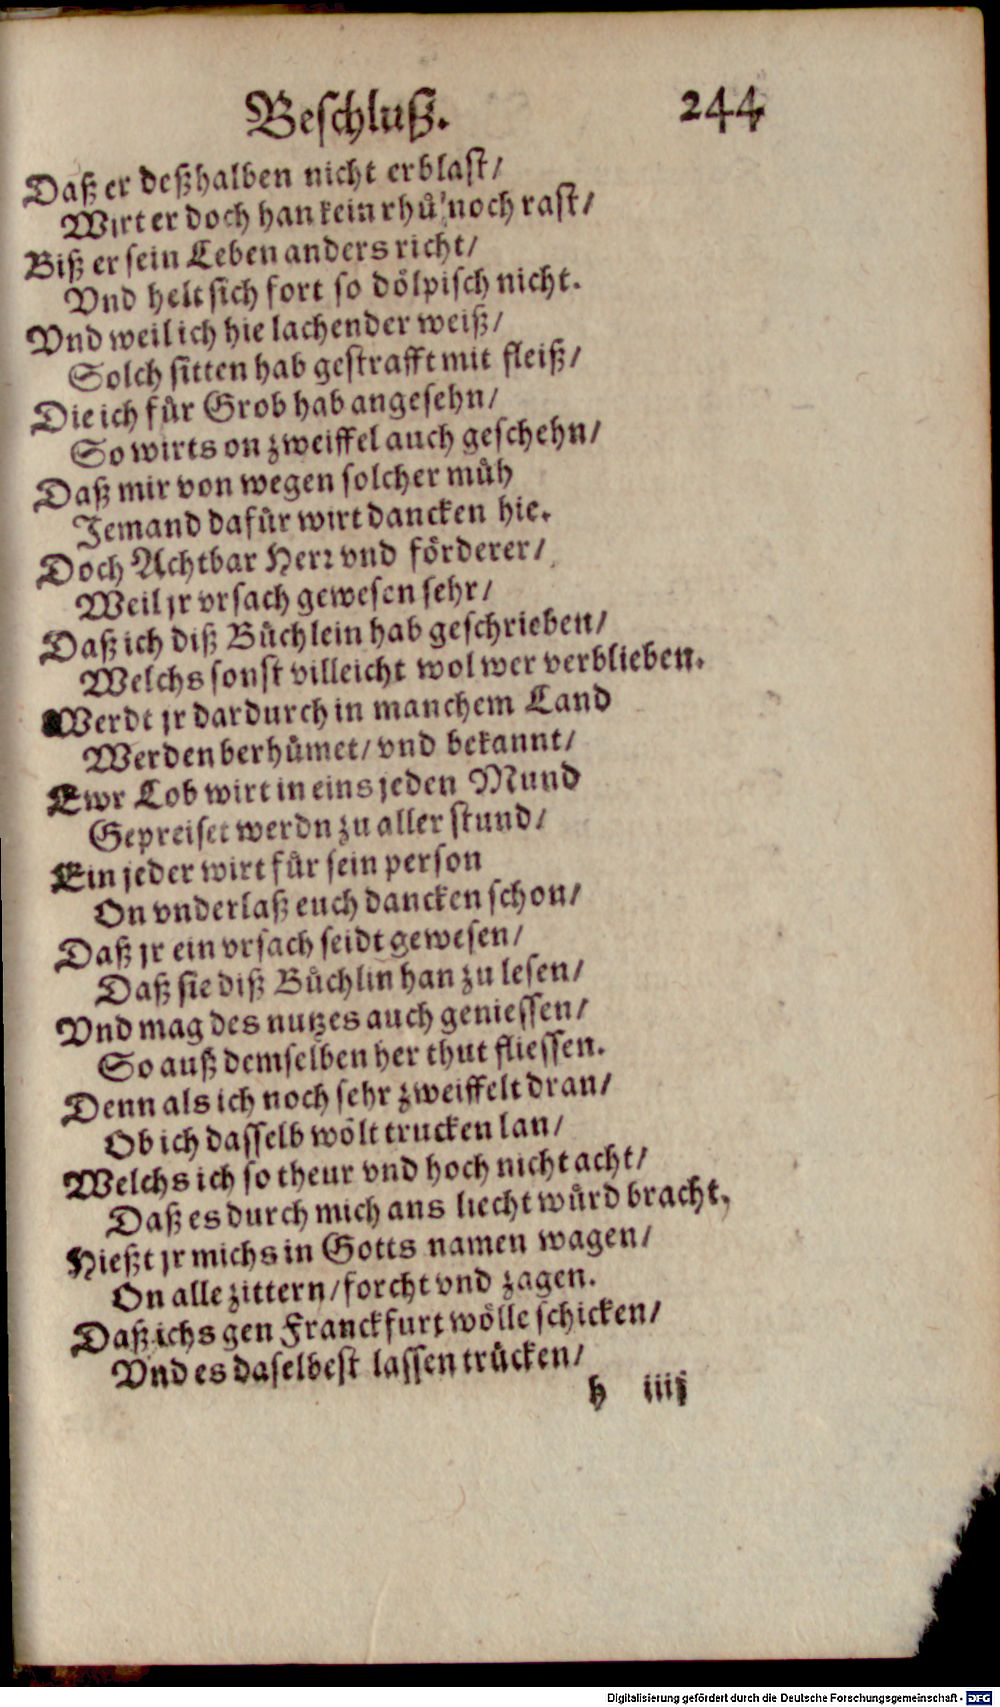 Beschluß. 244
Daß er deßhalben nicht erblast/
Wirt er doch han kein rhů noch rast/
Biß er sein Leben anders richt/
Vnd helt sich fort so dölpisch nicht.
Vnd weil ich hie lachender weiß/
Solch sitten hab gestrafft mit fleiß/
Die ich für Grob hab angesehn/
So wirts on zweiffel auch geschehn/
Daß mir von wegen solcher müh
Jemand dafür wirt dancken hie.
Doch Achtbar Herr vnd förderer/
Weil jr vrsach gewesen sehr/
Daß ich diß Büchlein hab geschrieben/
Welchs sonst villeicht wol wer verblieben.
Werdt jr dardurch in manchem Land
Werden berhümet/ vnd bekannt/
Ewr Lob wirt in eins jeden Mund
Gepreiset werdn zu aller stund/
Ein jeder wirt für sein person
On vnderlaß euch dancken schon/
Daß jr ein vrsach seidt gewesen/
Daß sie diß Büchlin han zu lesen/
Vnd mag des nutzes auch geniessen/
So auß demselben her thut fliessen.
Denn als ich noch sehr zweiffelt dran/
Ob ich dasselb wölt trucken lan/
Welchs ich so theur vnd hoch nicht acht/
Daß es durch mich ans liecht würd bracht,
Hießt jr michs in Gotts namen wagen/
On alle zittern/ forcht vnd zagen.
Daß ichs gen Franckfurt wölle schicken/
Vnd es daselbest lassen trücken/
h iiij
Digitalisierung gefördert durch die Deutsche Forschungsgemeinschaft - DFG